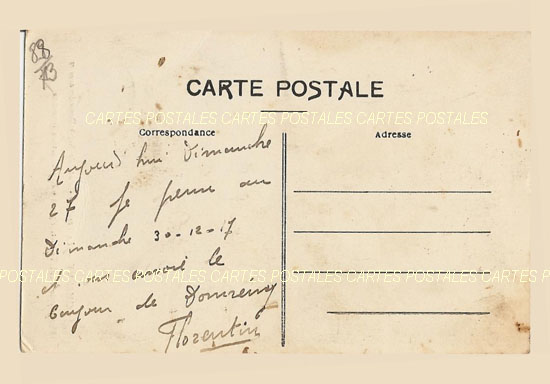 88
CARTE POSTALE
CARTES POSTALES CARTES POSTALES CARTES POSTALES
Correspondance
Adresse
Aujourd hui Dimanche
27 Je pense au
Dimanche 30-12-17
CARTES POSTALES CARTES POSTALES CARTES POSTALES CARTES POSTALES
et le
bonjour de Domremy
Florentin